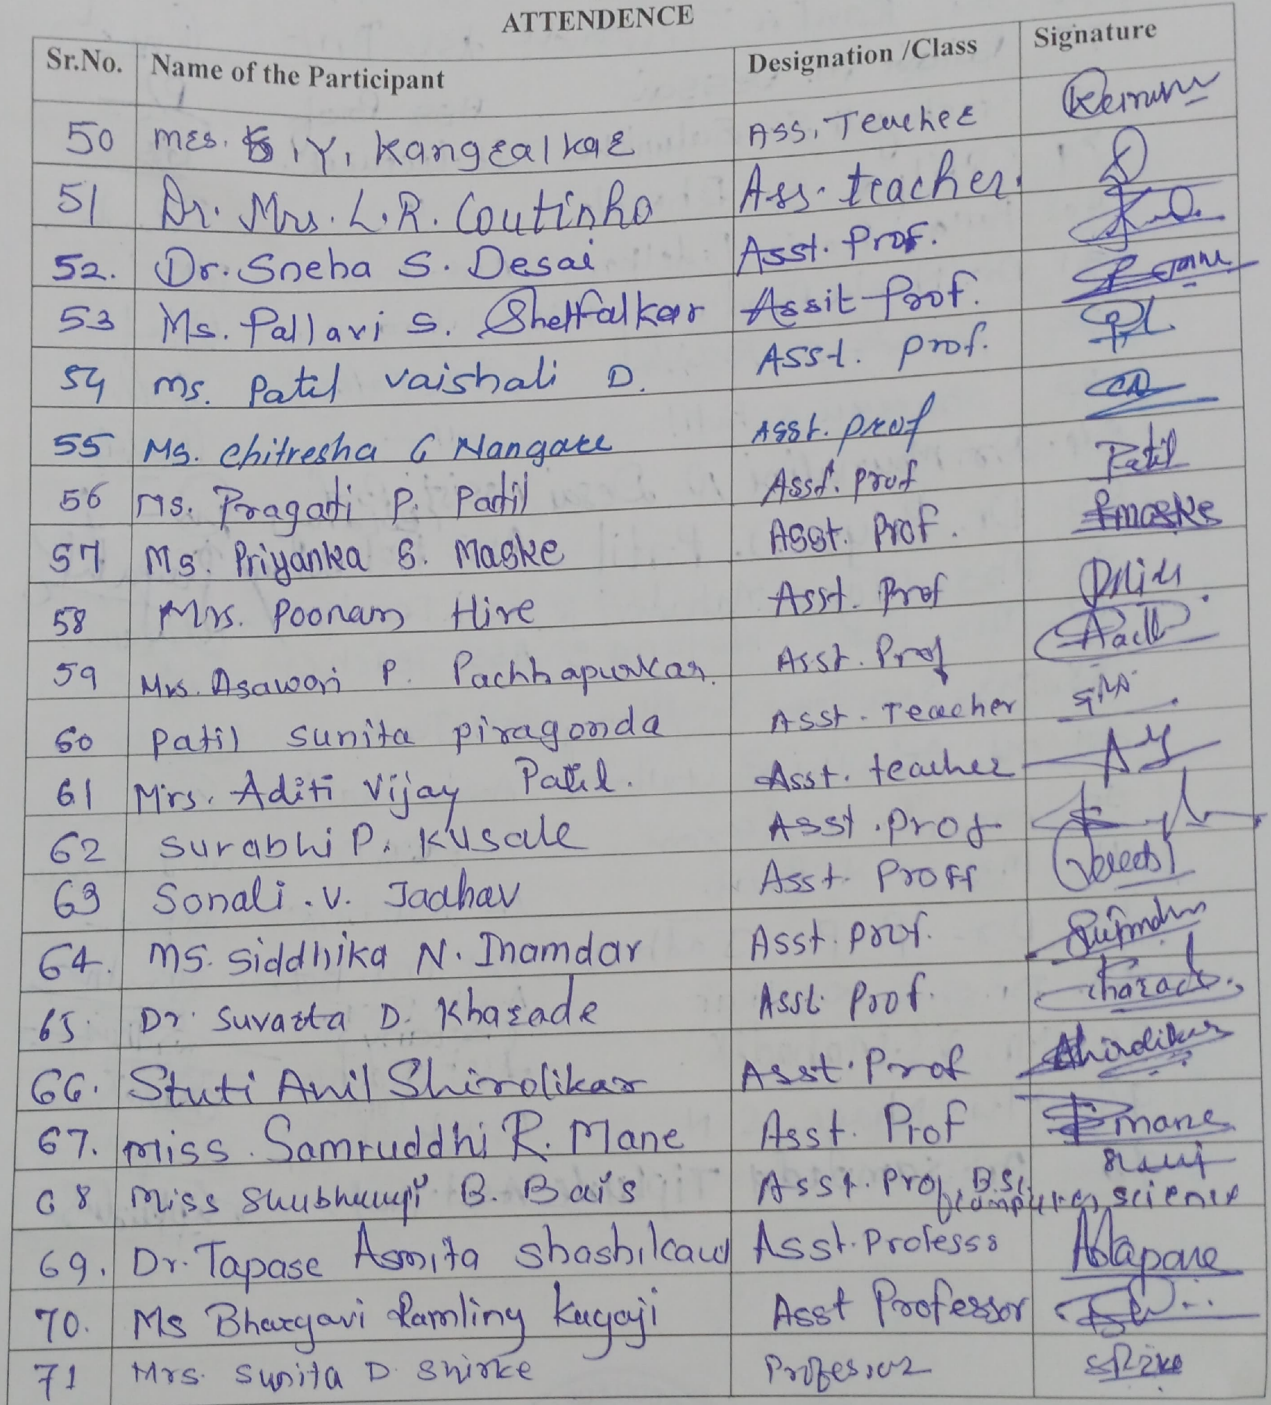 ATTENDENCE
Sr.No. Name of the Participant Designation /Class Signature
50 Mrs. Y. Kangralkar Ass. Teacher
51 Dr. Mrs. L.R. Coutinho Ass. teacher.
52. Dr. Sneha S. Desai Asst. Prof.
53 Ms. Pallavi S. Shetfalkar Assit Prof.
54 Ms. Patil Vaishali D. Asst. Prof.
55 Ms. Chitresha G Nangare Asst. prof
56 Ms. Pragati P. Patil Asst. prof Patil
57. Ms. Priyanka S. Maske Asst. Prof. Pmaske
58 Mrs. Poonam Hire Asst. Prof
59 Mrs. Asawari P. Pachhapurkar. Asst. Prof
60 Patil Sunita piragonda Asst. Teacher
61 Mrs. Aditi Vijay Patil. Asst. teacher
62 Surabhi P. Kusale Asst. prof
63 Sonali. V. Jadhav Asst. Proff
64. Ms. Siddhika N. Inamdar Asst. prof.
65. Dr. Suvarta D. Kharade Asst. Prof.
66. Stuti Anil Shirolikar Asst. Prof
67. Miss. Samruddhi R. Mane Asst. Prof
68 Miss Shubhangi B. Bais Asst. Prof B.Sc Computer science
69. Dr. Tapase Asmita Shashikant Asst. Profess
70. Ms Bhargavi Ramling Kugaji Asst Professor
71 Mrs. Sunita D. Shirke Professor